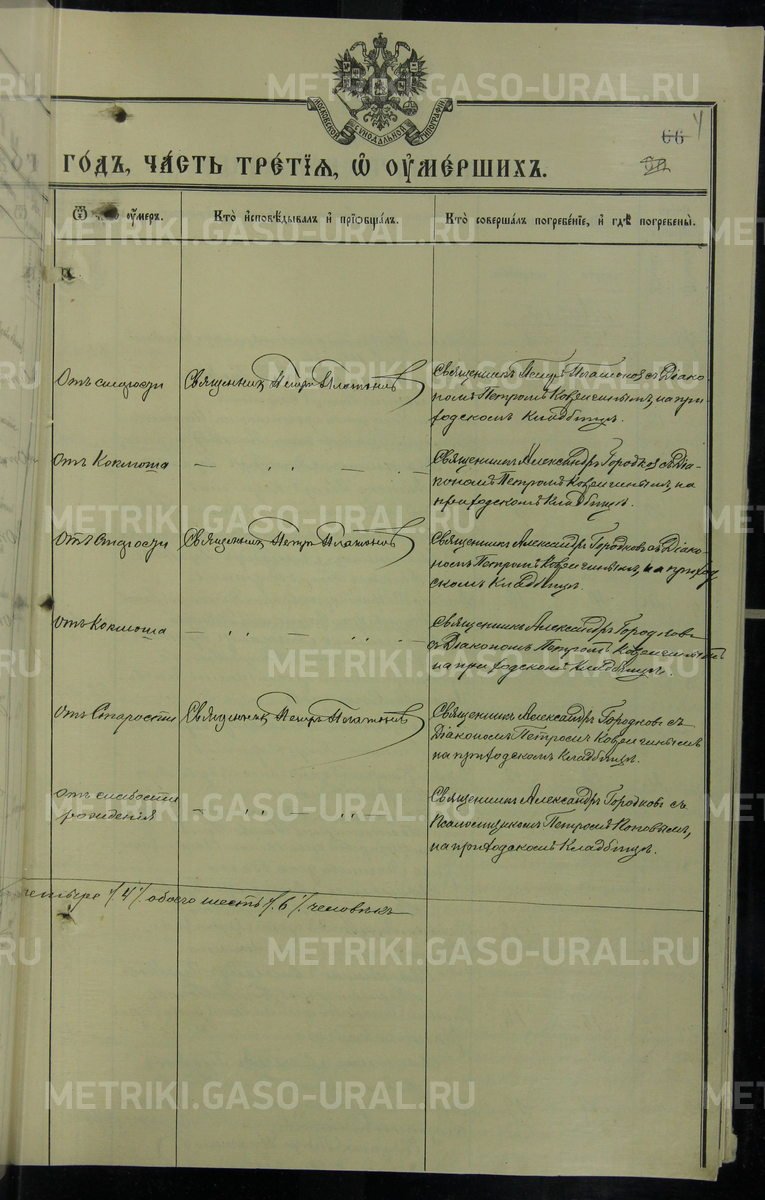 METRIKI.GASO-URAL.RU
МОСКОВСКОЙ СѴНОДАЛЬНОЙ ТИПОГРАФІИ
66
4
ГО́ДЪ, ЧА́СТЬ ТРЕ́ТІѦ, Ѡ҆ ОУ҆МЕ́РШИХЪ.
Ѿ оу҆́меръ.
Кто̀ и҆сповѣ́дывалъ и҆ прїѡбща́лъ.
Кто̀ соверша́лъ погребе́нїе, и҆ гдѣ̀ погребены̀.
Отъ старости
Священникъ Петръ Платоновъ
Священникъ Петръ Платоновъ съ Діако-
номъ Петромъ Ковригинымъ, на при-
ходскомъ кладбищѣ.
Отъ Коклюша
— „ — „
Священникъ Александръ Городковъ съ Діа-
кономъ Петромъ Ковригинымъ, на
приходскомъ кладбищѣ.
Отъ Старости
Священникъ Петръ Платоновъ
Священникъ Александръ Городковъ съ Діако-
номъ Петромъ Ковригинымъ, на приход
скомъ Кладбищѣ.
Отъ Коклюша
— „ — „ —
Священникъ Александръ Городковъ
съ Діакономъ Петромъ Ковригинымъ
на приходскомъ Кладбищѣ.
Отъ Старости
Священникъ Петръ Платоновъ
Священникъ Александръ Городковъ съ
Діакономъ Петромъ Ковригинымъ
на приходскомъ Кладбищѣ.
Отъ слабости
рожденія
— „ — „ —
Священникъ Александръ Городковъ съ
Псаломщикомъ Петромъ Поповымъ,
на приходскомъ Кладбищѣ.
/4/. обоего шесть /.6/. человѣкъ